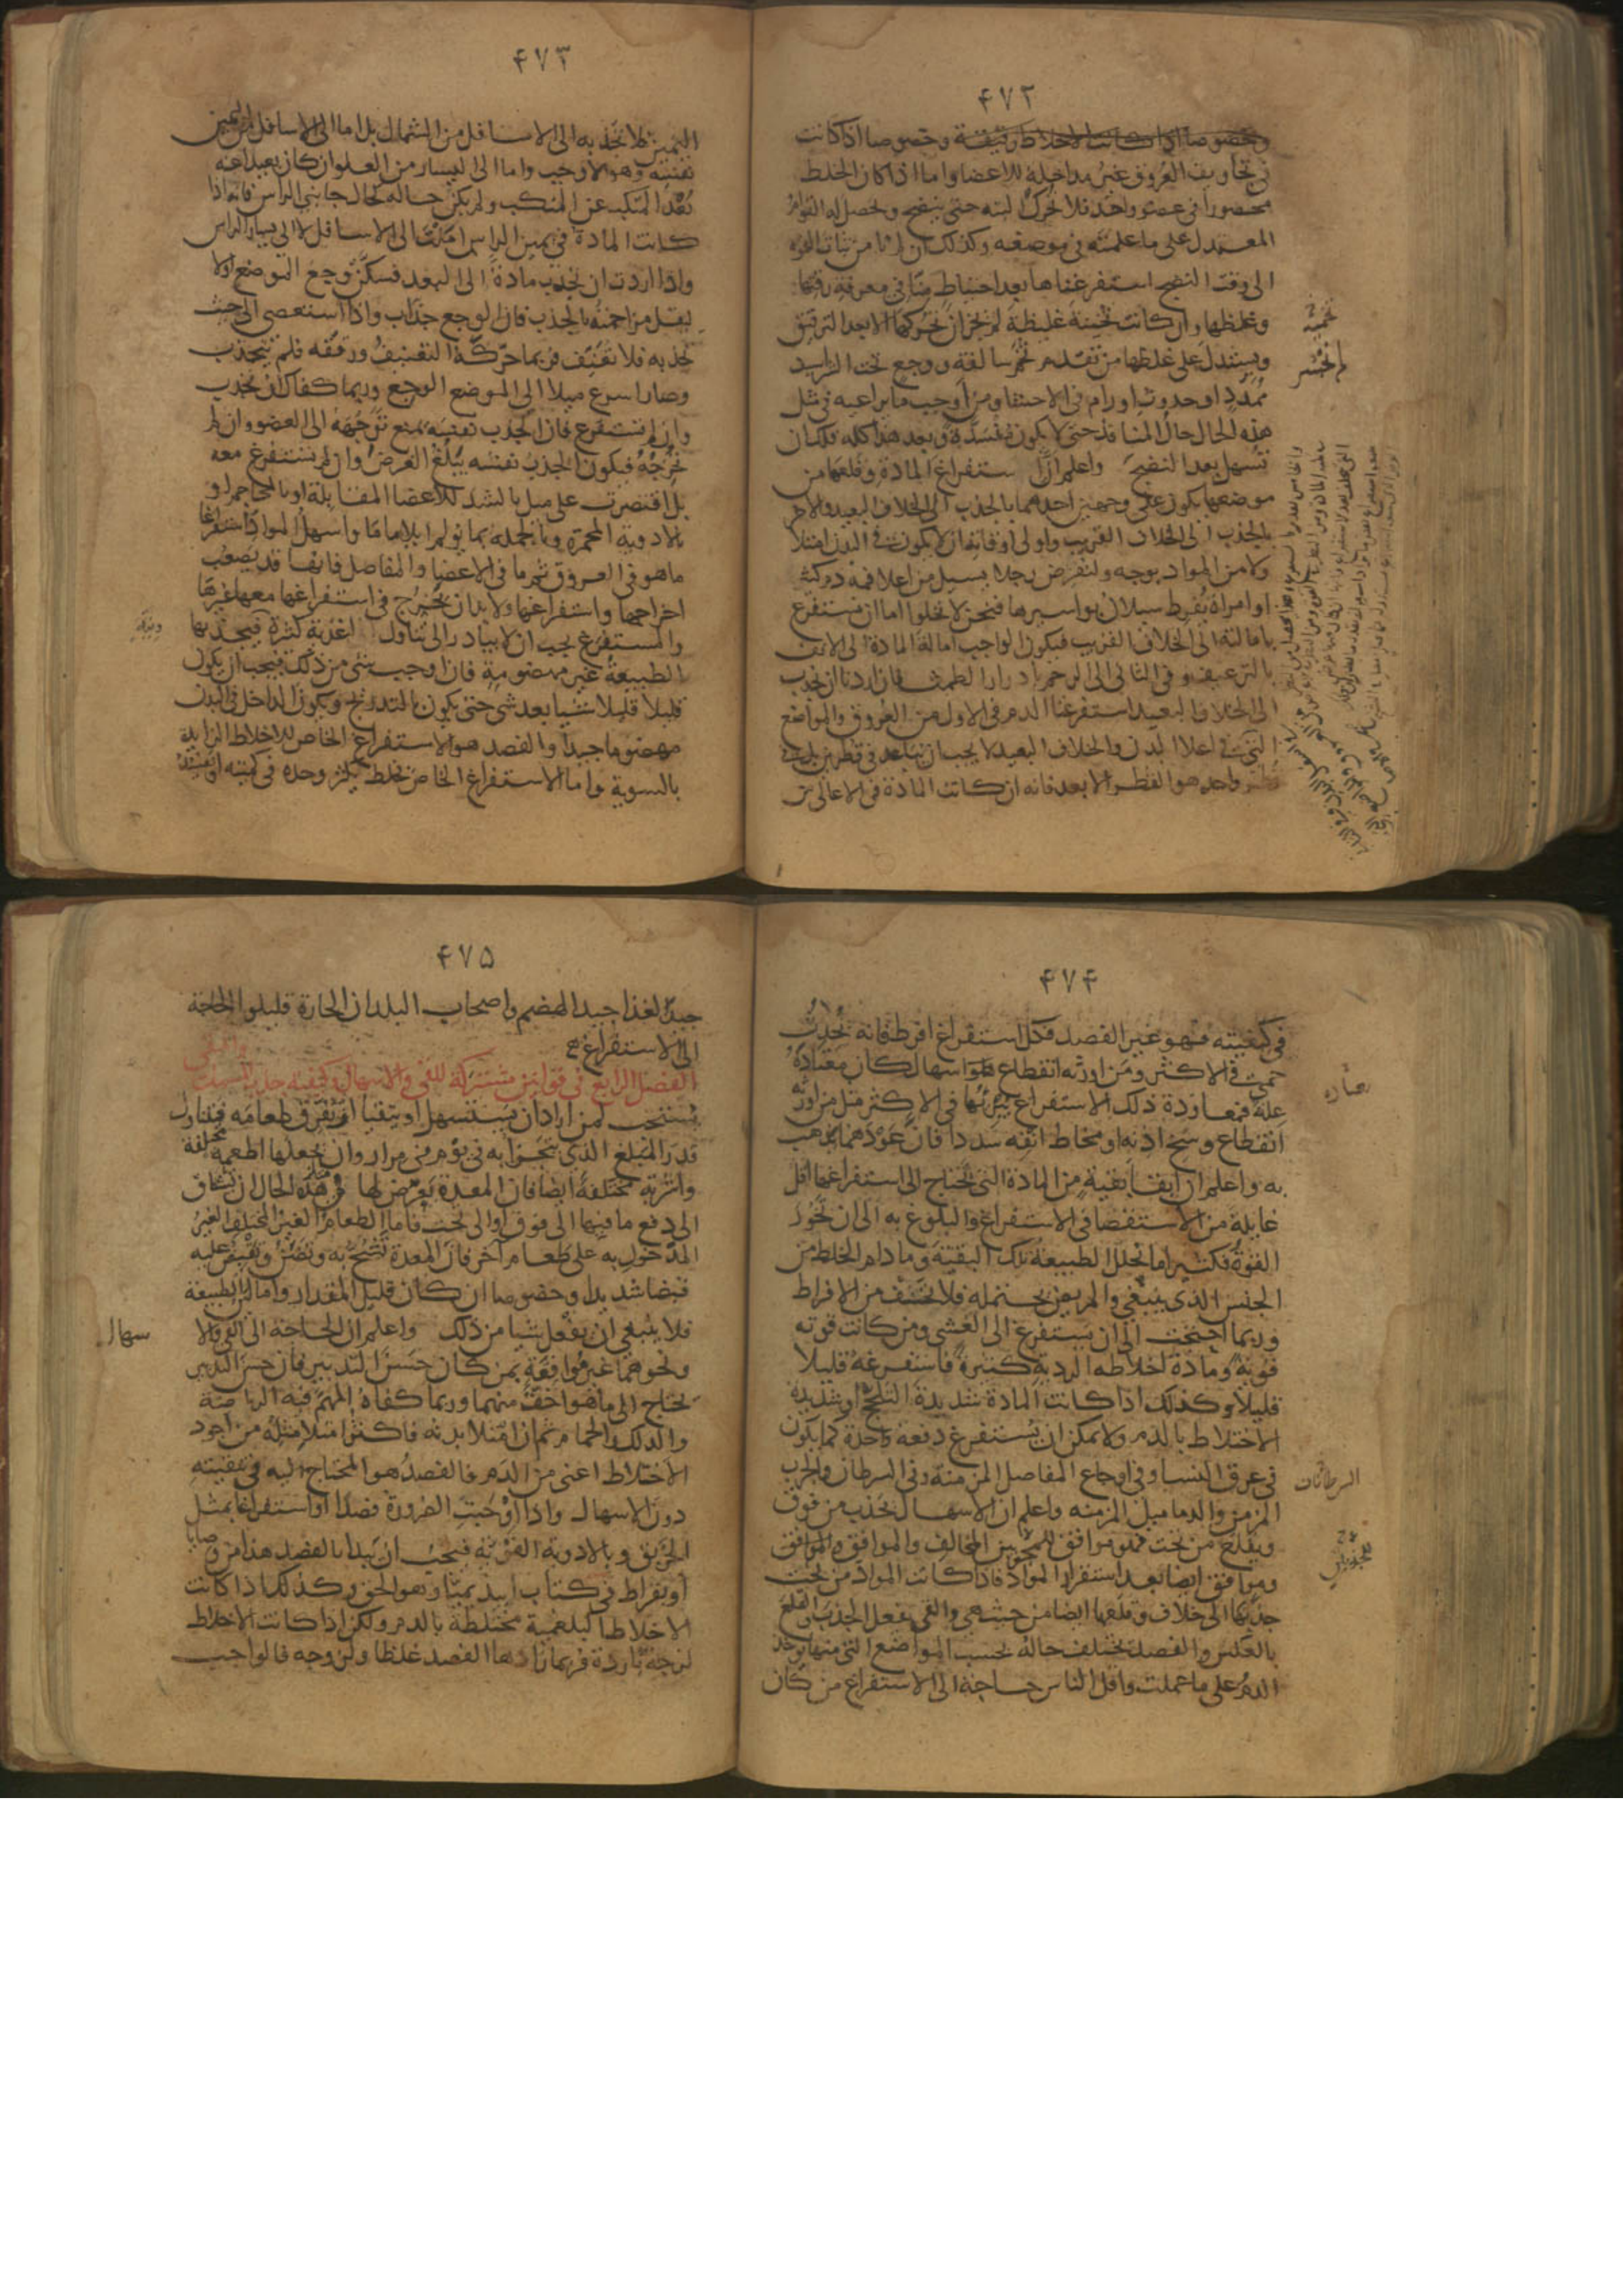 ۴۷۲
وخصوصا اذا كانت الاخلاط رقيقة وخصوصا اذا كانت
فى تجاويف العروق غير مداخلة للاعضا واما اذا كان الخلط
محصورا فى عضو واحد فلا تحرك البته حتى ينضج ويحصل له القوام
المعتدل على ما علمته فى موضعه وكذلك ان لم نامن ثبات القوة
الى وقت النضج استفرغناها بعد احتياط منا فى معرفة رقتها
وغلظها وان كانت ثخينة غليظة لم يجز ان نحركها الا بعد الترقيق
ويستدل على غلظها من تقدم تخم سالفة ووجع تحت الشراسيف
ممدد او حدوث اورام فى الاحشا ومن اوجب ما يراعيه فى مثل
هذه الحال حال المنافذ حتى لا يكون منسدة وبعد هذا كله فلك ان
تسهل بعد النضج واعلم ان استفراغ المادة وقلعها من
موضعها يكون على وجهين احدهما بالجذب الى الخلاف البعيد والاخر
بالجذب الى الخلاف القريب واولى اوقاته ان لا يكون فى البدن امتلا
ولا من المواد بوجه ولنفرض رجلا يسيل من اعلا فمه دم كثير
او امراة يفرط سيلان بواسيرها فنحن لا نخلوا اما ان نستفرغ
بامالته الى الخلاف القريب فيكون الواجب امالة المادة الى الانف
بالترعيف وفى الثانى الى الرحم بادرار الطمث فان اردنا ان نجذب
الى الخلاف البعيد استفرغنا الدم فى الاول من العروق والمواضع
التى فى اعلا البدن والخلاف البعيد لا يجب ان يتباعد فى قطرين بل فى
قطر واحد هو القطر الابعد فانه ان كانت المادة فى الاعالى من
۴۷۳
اليمين فلا تجذبه الى الاسافل من الشمال بل اما الى الاسافل من اليمين
نفسه وهو الاوجب واما الى اليسار من العلو ان كان بعيدا عنه
بعد المنكب عن المنكب ولم يكن حاله كحال جانبى الراس فانه اذا
كانت المادة فى يمين الراس اميلت الى الاسافل لا الى يسار الراس
واذا اردت ان تجذب مادة الى البعد فسكن وجع الموضع اولا
ليقل مزاحمته بالجذب فان الوجع جذاب واذا استعصى الى حيث
تجذبه فلا تعنف فربما حركه التعنيف ورققه فلم ينجذب
وصار اسرع ميلا الى الموضع الوجع وربما كفاك ان تجذب
وان لم تستفرغ فان الجذب نفسه يمنع توجهه الى العضو وان لم
تخرجه فيكون الجذب نفسه يبلغ الغرض وان لم يستفرغ معه
بل اقتصرت على ميل بالشد للاعضا المقابلة او بالمحاجم او
بالادوية المحمرة وبالجملة بما يولم ايلاما ما واسهل المواد استفراغا
ما هو فى العروق ثم ما فى الاعضا والمفاصل فانها قد يصعب
اخراجها واستفراغها ولا بد ان يخرج فى استفراغها معها غيرها
والمستفرغ يجب ان لا يبادر الى تناول اغذية كثيرة فيجذبها
الطبيعة غير مهضومة فان اوجب شى من ذلك فيجب ان يكون
قليلا قليلا شيا بعد شى حتى يكون بالتدريج ويكون الداخل فى البدن
مهضوما جيدا والفصد هو الاستفراغ الخاص للاخلاط الزايدة
بالسوية واما الاستفراغ الخاص بخلط يكثر وحده فى كميته او يفسد
۴۷۴
فى كيفيته فهو غير الفصد فكل استفراغ افرط فانه يحدث
حمى فى الاكثر ومن اورثه انقطاع اسهال كان معتاده
علة فمعاودة ذلك الاستفراغ يبرئها فى الاكثر مثل من اورثه
انقطاع وسخ اذنه او مخاط انفه سددا فان عودهما يذهب
به واعلم ان ابقا بقية من المادة التى تحتاج الى استفراغها اقل
غايلة من الاستقصا فى الاستفراغ والبلوغ به الى ان تخور
القوة فكثيرا ما تحلل الطبيعة تلك البقية وما دام الخلط من
الجنس الذى ينبغى والمريض يحتمله فلا تخف من الافراط
وربما احتجت الى ان يستفرغ الى الغشى ومن كانت قوته
قوية ومادة اخلاطه الردية كثيرة فاستفرغه قليلا
قليلا وكذلك اذا كانت المادة شديدة التلحج او شديدة
الاختلاط بالدم ولا يمكن ان يستفرغ دفعة واحدة كما يكون
فى عرق النسا وفى اوجاع المفاصل المزمنة وفى السرطان والجرب
السرطانات
المزمن والدماميل المزمنه واعلم ان الاسهال يجذب من فوق
ويقلع من تحت فهو موافق للجذبين المخالف والموافق
وموافق ايضا بعد استقرار المواد فاذا كانت المواد من تحت
جذبها الى خلاف وقلعها ايضا من حيث هى والقى يفعل الجذب والقلع
بالعكس والفصد يختلف حاله بحسب المواضع التى منها يوخذ
الدم على ما علمت واقل الناس حاجة الى الاستفراغ من كان
۴۷۵
جيد الغذا جيد الهضم واصحاب البلدان الحارة قليلوا الحاجة
الى الاستفراغ
الفصل الرابع فى قوانين مشتركة للقى والاسهال وكيفية جذب المسهل
والمقى
يستحب لمن اراد ان يستسهل او يتقيا ان يفرق طعامه فيتناول
قدر المبلغ الذى يجتزا به فى يوم فى مرار وان يجعلها اطعمة مختلفة
واشربة مختلفة ايضا فان المعدة يعرض لها فى هذه الحال ان تشتاق
الى دفع ما فيها الى فوق او الى تحت فاما الطعام الغير المختلف الغير
المدخول به على طعام اخر فان المعدة تشح به وتضن وتقبض عليه
قبضا شديدا وخصوصا ان كان قليل المقدار واما اللين الطبيعة
فلا ينبغى ان يفعل شيا من ذلك واعلم ان الحاجة الى القى والا
سهال
ونحوهما غير موافقة بمن كان حسن التدبير فان حسن التدبير
يحتاج الى ما هو اخف منهما وربما كفاه المهم فيه الرياضة
والدلك والحمام ثم ان امتلا بدنه فاكثر امتلا مثله من اجود
الاخلاط اعنى من الدم فالفصد هو المحتاج اليه فى تنقيته
دون الاسهال واذا اوجبت الضرورة فصدا او استفراغا بمثل
الخربق وبالادوية القوية فيجب ان يبدا بالفصد هذا من وصايا
ابقراط فى كتاب ابيديميا وهو الحق وكذلك اذا كانت
الاخلاط البلغمية مختلطة بالدم ولكن اذا كانت الاخلاط
لزجة باردة فربما زادها الفصد غلظا ولزوجه فالواجب